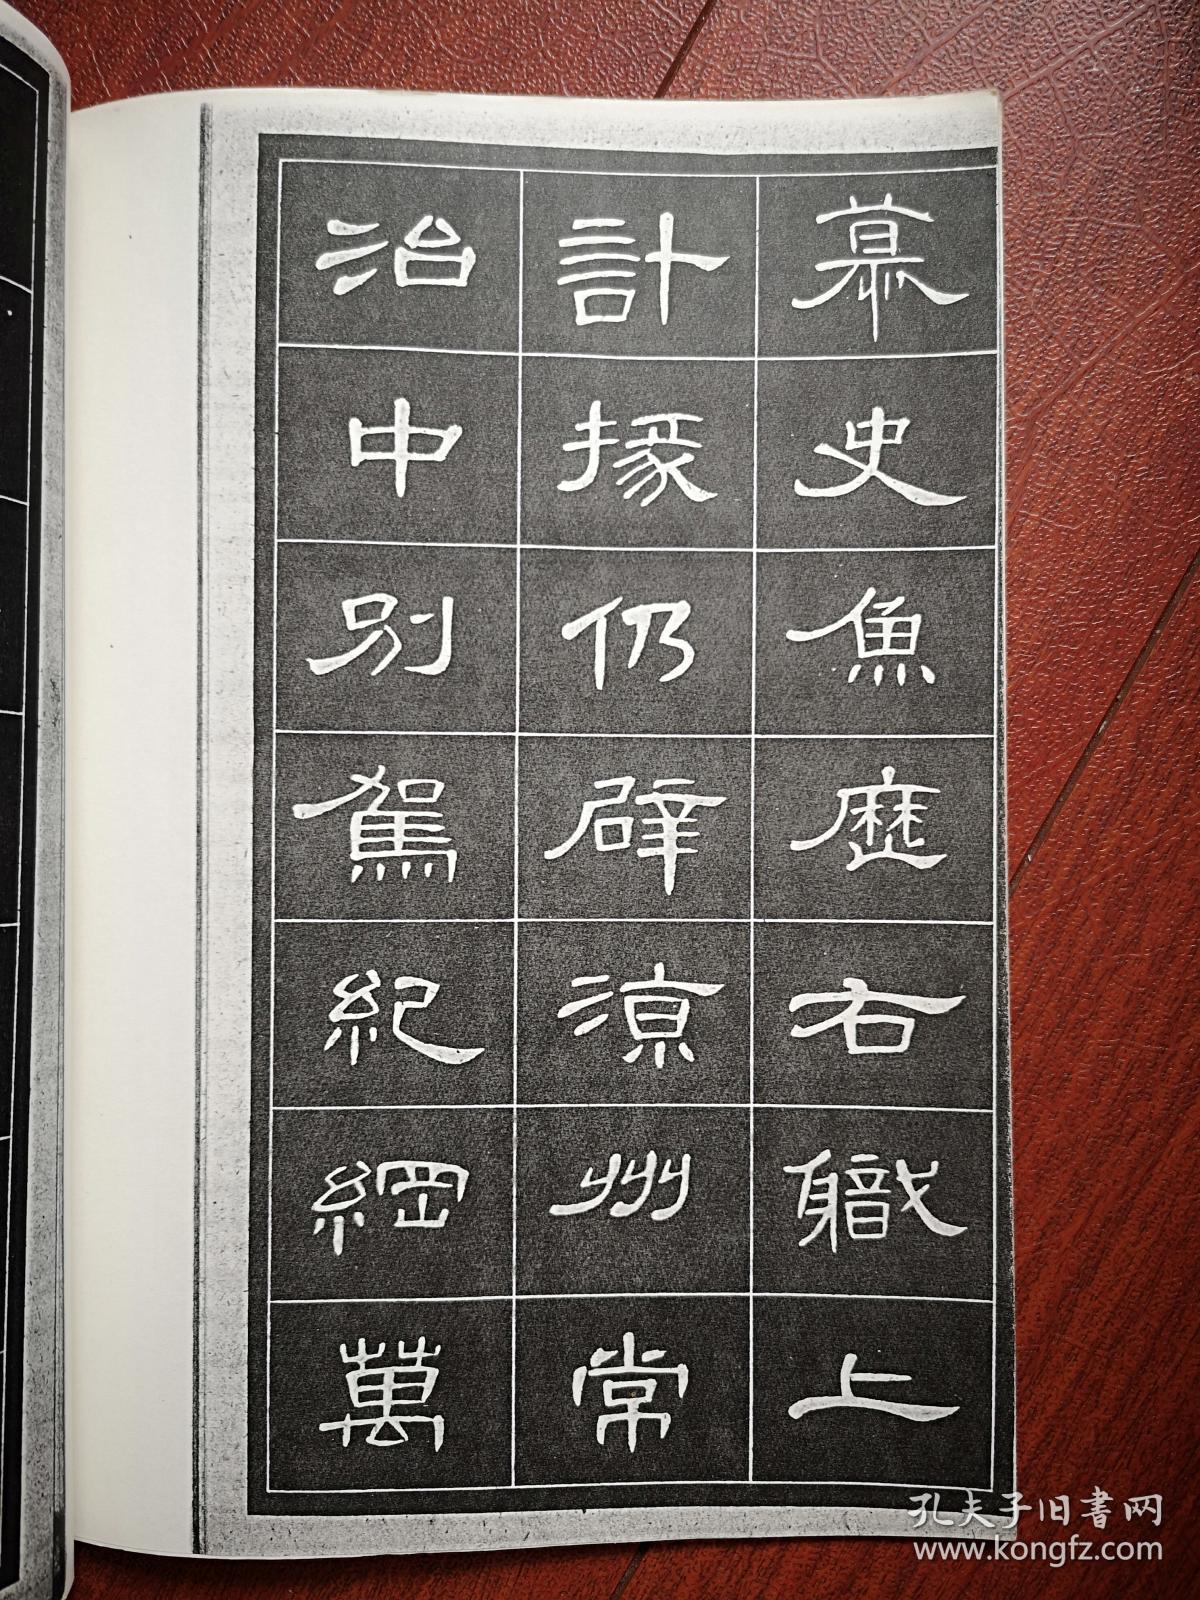 慕史魚歷右職上
計掾仍辟涼州常
治中別駕紀綱萬
孔夫子旧書网
www.kongfz.com